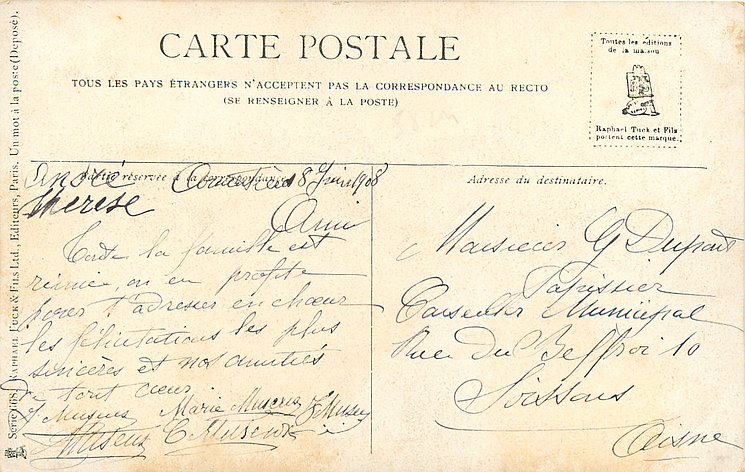 CARTE POSTALE
TOUS LES PAYS ÉTRANGERS N'ACCEPTENT PAS LA CORRESPONDANCE AU RECTO
(SE RENSEIGNER À LA POSTE)
Toutes les éditions
de la maison
Raphael Tuck et Fils
portent cette marque.
Série 608. RAPHAEL TUCK & FILS LTD., Editeurs, Paris. Un mot à la poste (Deposé).
Partie réservée à la correspondance
André
Therese
8 Juin 1908
Ami
Toute la famille est
réunie, on en profite
pour t'adresser en chœur
les félicitations les plus
sincères et nos amitiés
de tout cœur
J. Museux Marie Museux J Museux
Museux C Museux
Adresse du destinataire.
Monsieur G Dupont
Tapissier
Conseiller Municipal
Rue du Beffroi 10
Soissons
Aisne